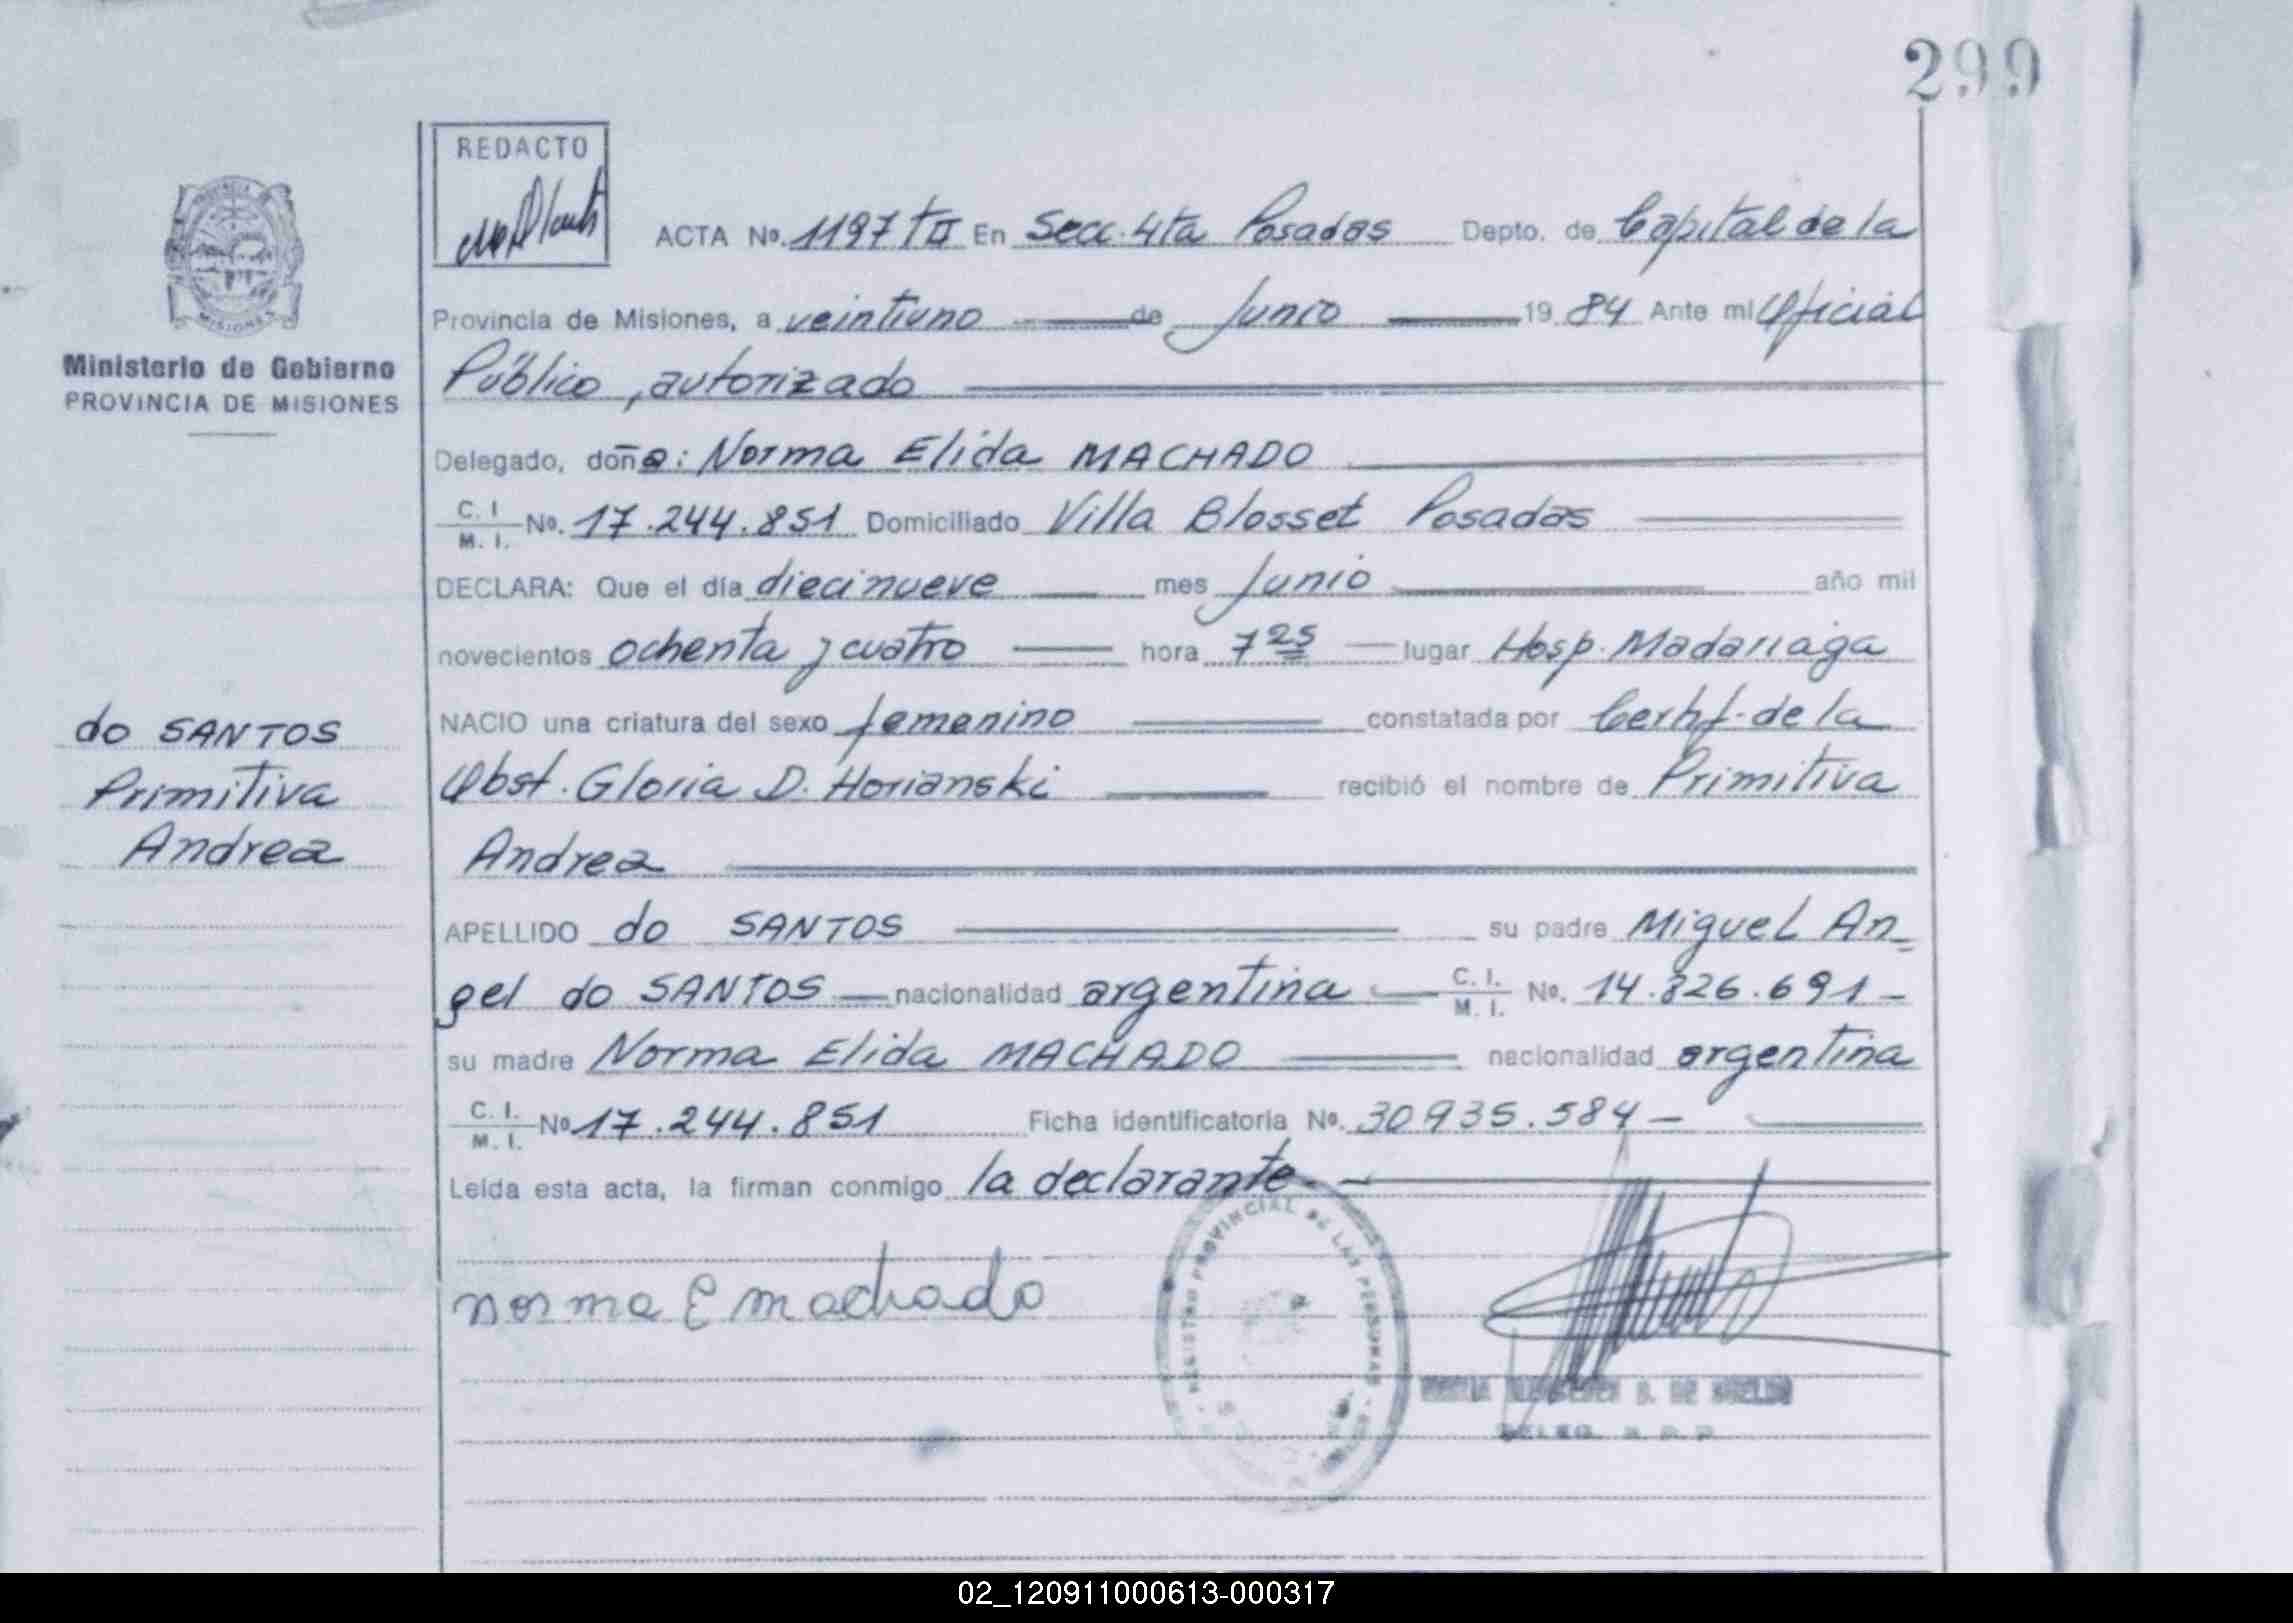 299
REDACTO
PROVINCIA
MISIONES
Ministerio de Gobierno
PROVINCIA DE MISIONES
do SANTOS
Primitiva
Andrea
ACTA No. 1197 tII En Secc. 4ta Posadas Depto. de Capital de la
Provincia de Misiones, a veintiuno de Junio 19 84 Ante mi Oficial
Público, autorizado
Delegado, doña: Norma Elida MACHADO
C. I. / M. I. No. 17.244.851 Domiciliado Villa Blosset Posadas
DECLARA: Que el día diecinueve mes Junio año mil
novecientos ochenta y cuatro hora 7 25 lugar Hosp. Madariaga
NACIO una criatura del sexo femenino constatada por Certif. de la
Obst. Gloria D. Horianski recibió el nombre de Primitiva
Andrea
APELLIDO do SANTOS su padre Miguel An_
gel do SANTOS nacionalidad argentina C. I. / M. I. No. 14.826.691 -
su madre Norma Elida MACHADO nacionalidad argentina
C. I. / M. I. No 17.244.851 Ficha identificatoria No. 30 935.584 -
Leída esta acta, la firman conmigo la declarante.
Norma E machado
REGISTRO PROVINCIAL DE LAS PERSONAS
02_120911000613-000317